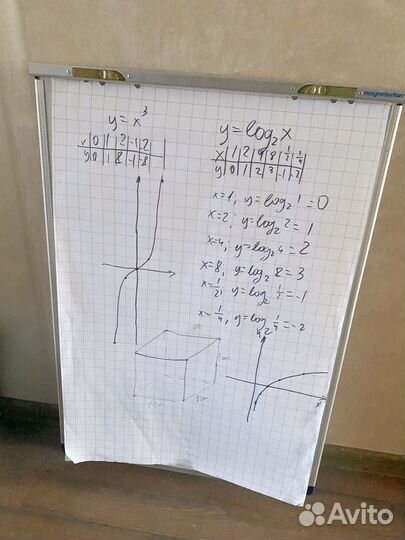 magnetoplan
y = x³
x | 0 | 1 | 2 | -1 | 2 |
y | 0 | 1 | 8 | -1 | -8 |
y = log₂ x
x | 1 | 2 | 4 | 8 | 1/2 | 1/4
y | 0 | 1 | 2 | 3 | -1 | -2
x=1, y=log₂ 1 = 0
x=2, y=log₂ 2 = 1
x=4, y=log₂ 4 = 2
x=8, y=log₂ 8 = 3
x=1/2, y=log₂ 1/2 = -1
x=1/4, y=log₂ 1/4 = -2
x
Avito